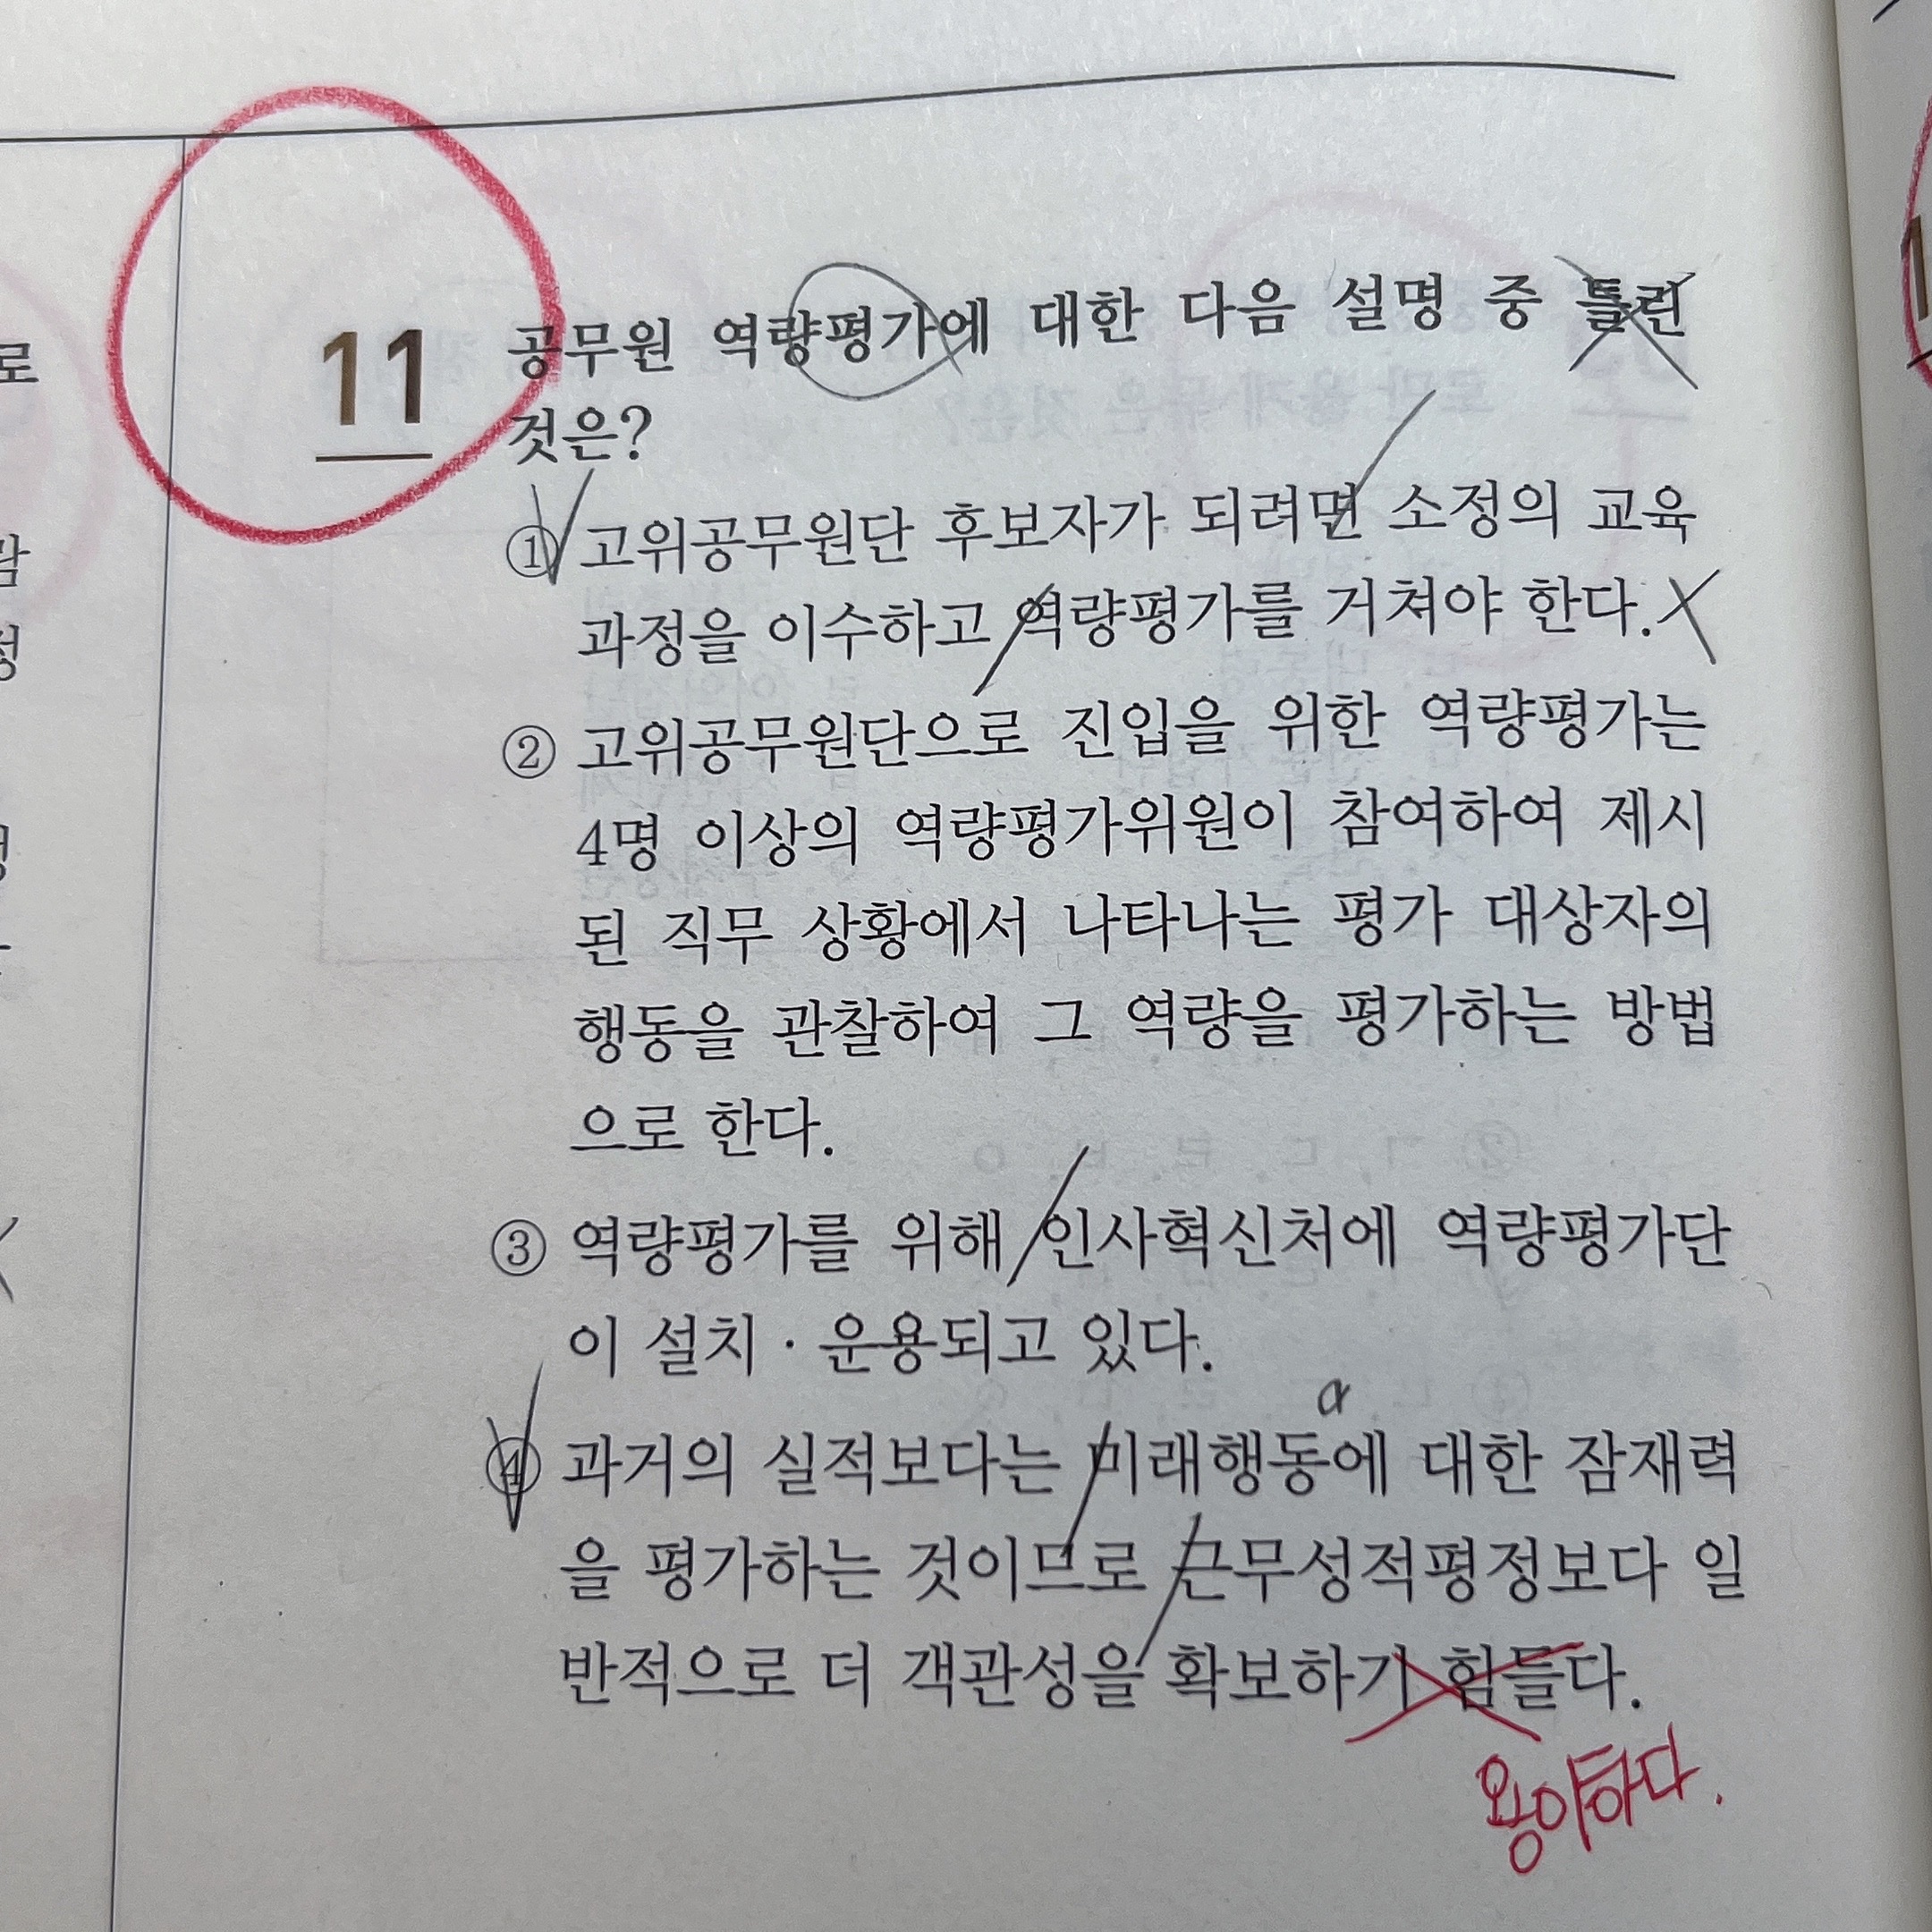 11
공무원 역량평가에 대한 다음 설명 중 틀린
것은?
① 고위공무원단 후보자가 되려면 소정의 교육
과정을 이수하고 역량평가를 거쳐야 한다.
② 고위공무원단으로 진입을 위한 역량평가는
4명 이상의 역량평가위원이 참여하여 제시
된 직무 상황에서 나타나는 평가 대상자의
행동을 관찰하여 그 역량을 평가하는 방법
으로 한다.
③ 역량평가를 위해 인사혁신처에 역량평가단
이 설치 · 운용되고 있다.
④ 과거의 실적보다는 미래행동에 대한 잠재력
을 평가하는 것이므로 근무성적평정보다 일
반적으로 더 객관성을 확보하기 힘들다.
용이하다.